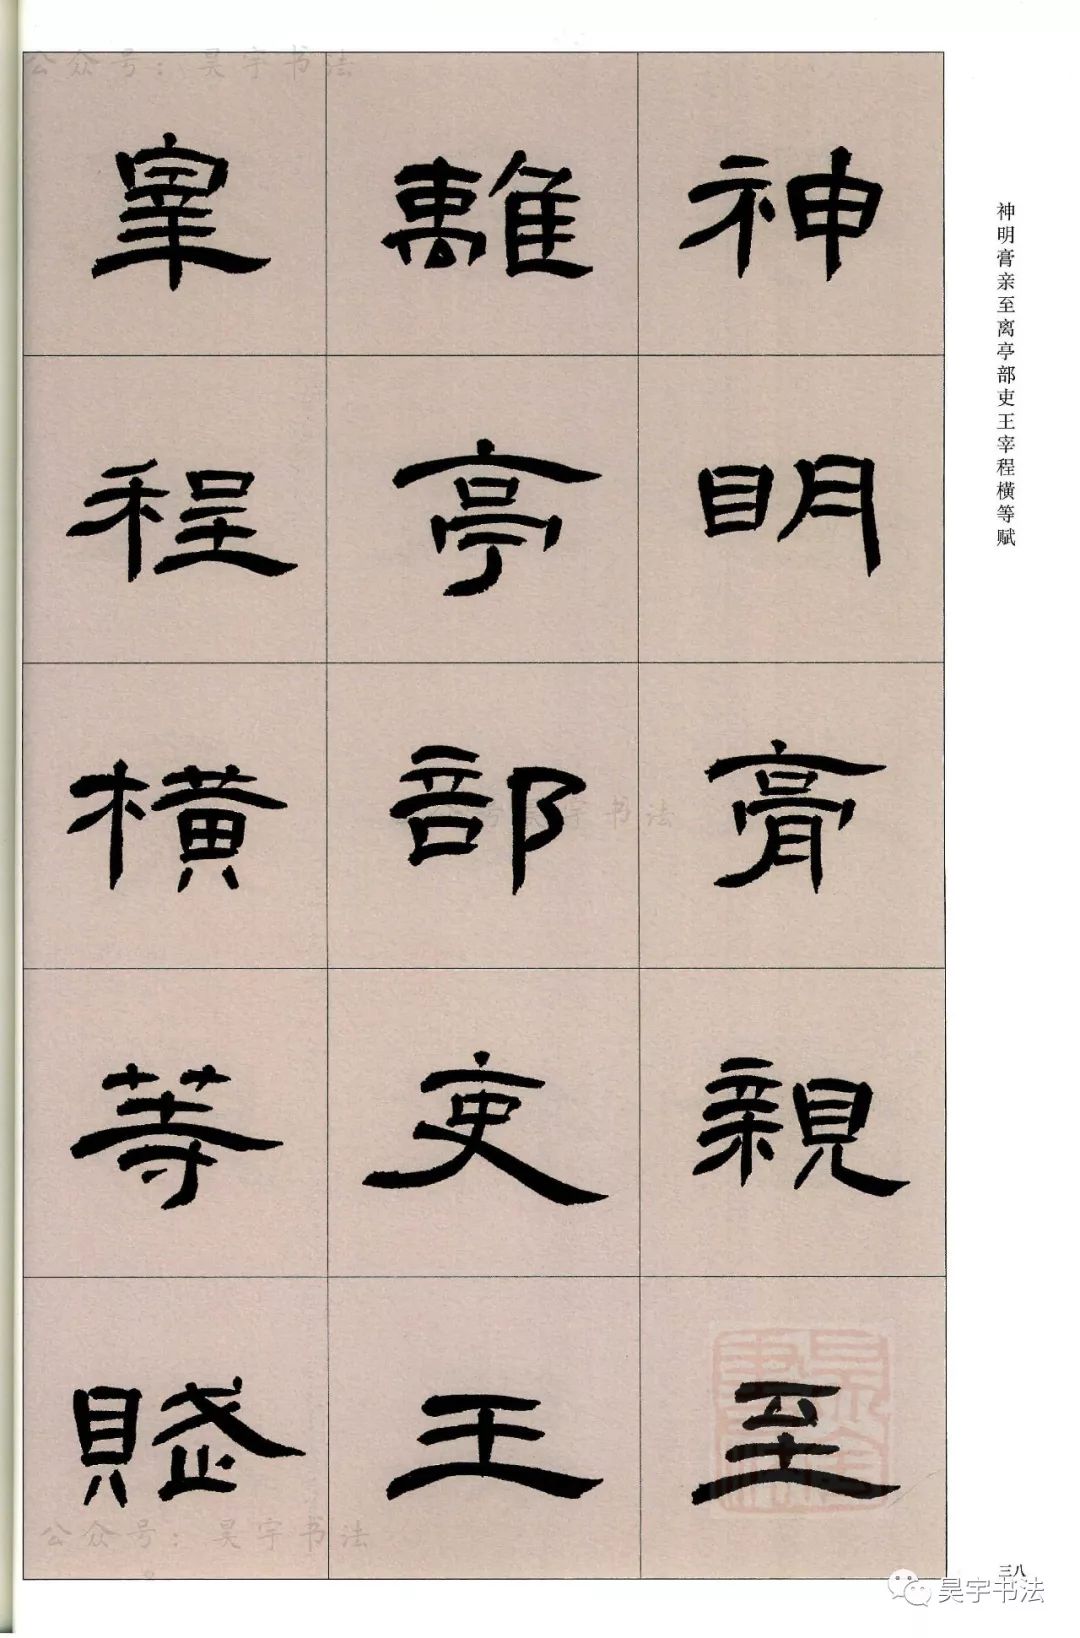 神明膏亲至离亭部吏王宰程横等赋
神明膏親至
離亭部吏王
宰程橫等賦
三八
公众号：昊宇书法
公众号：昊宇书法
公众号：昊宇书法
昊宇书法